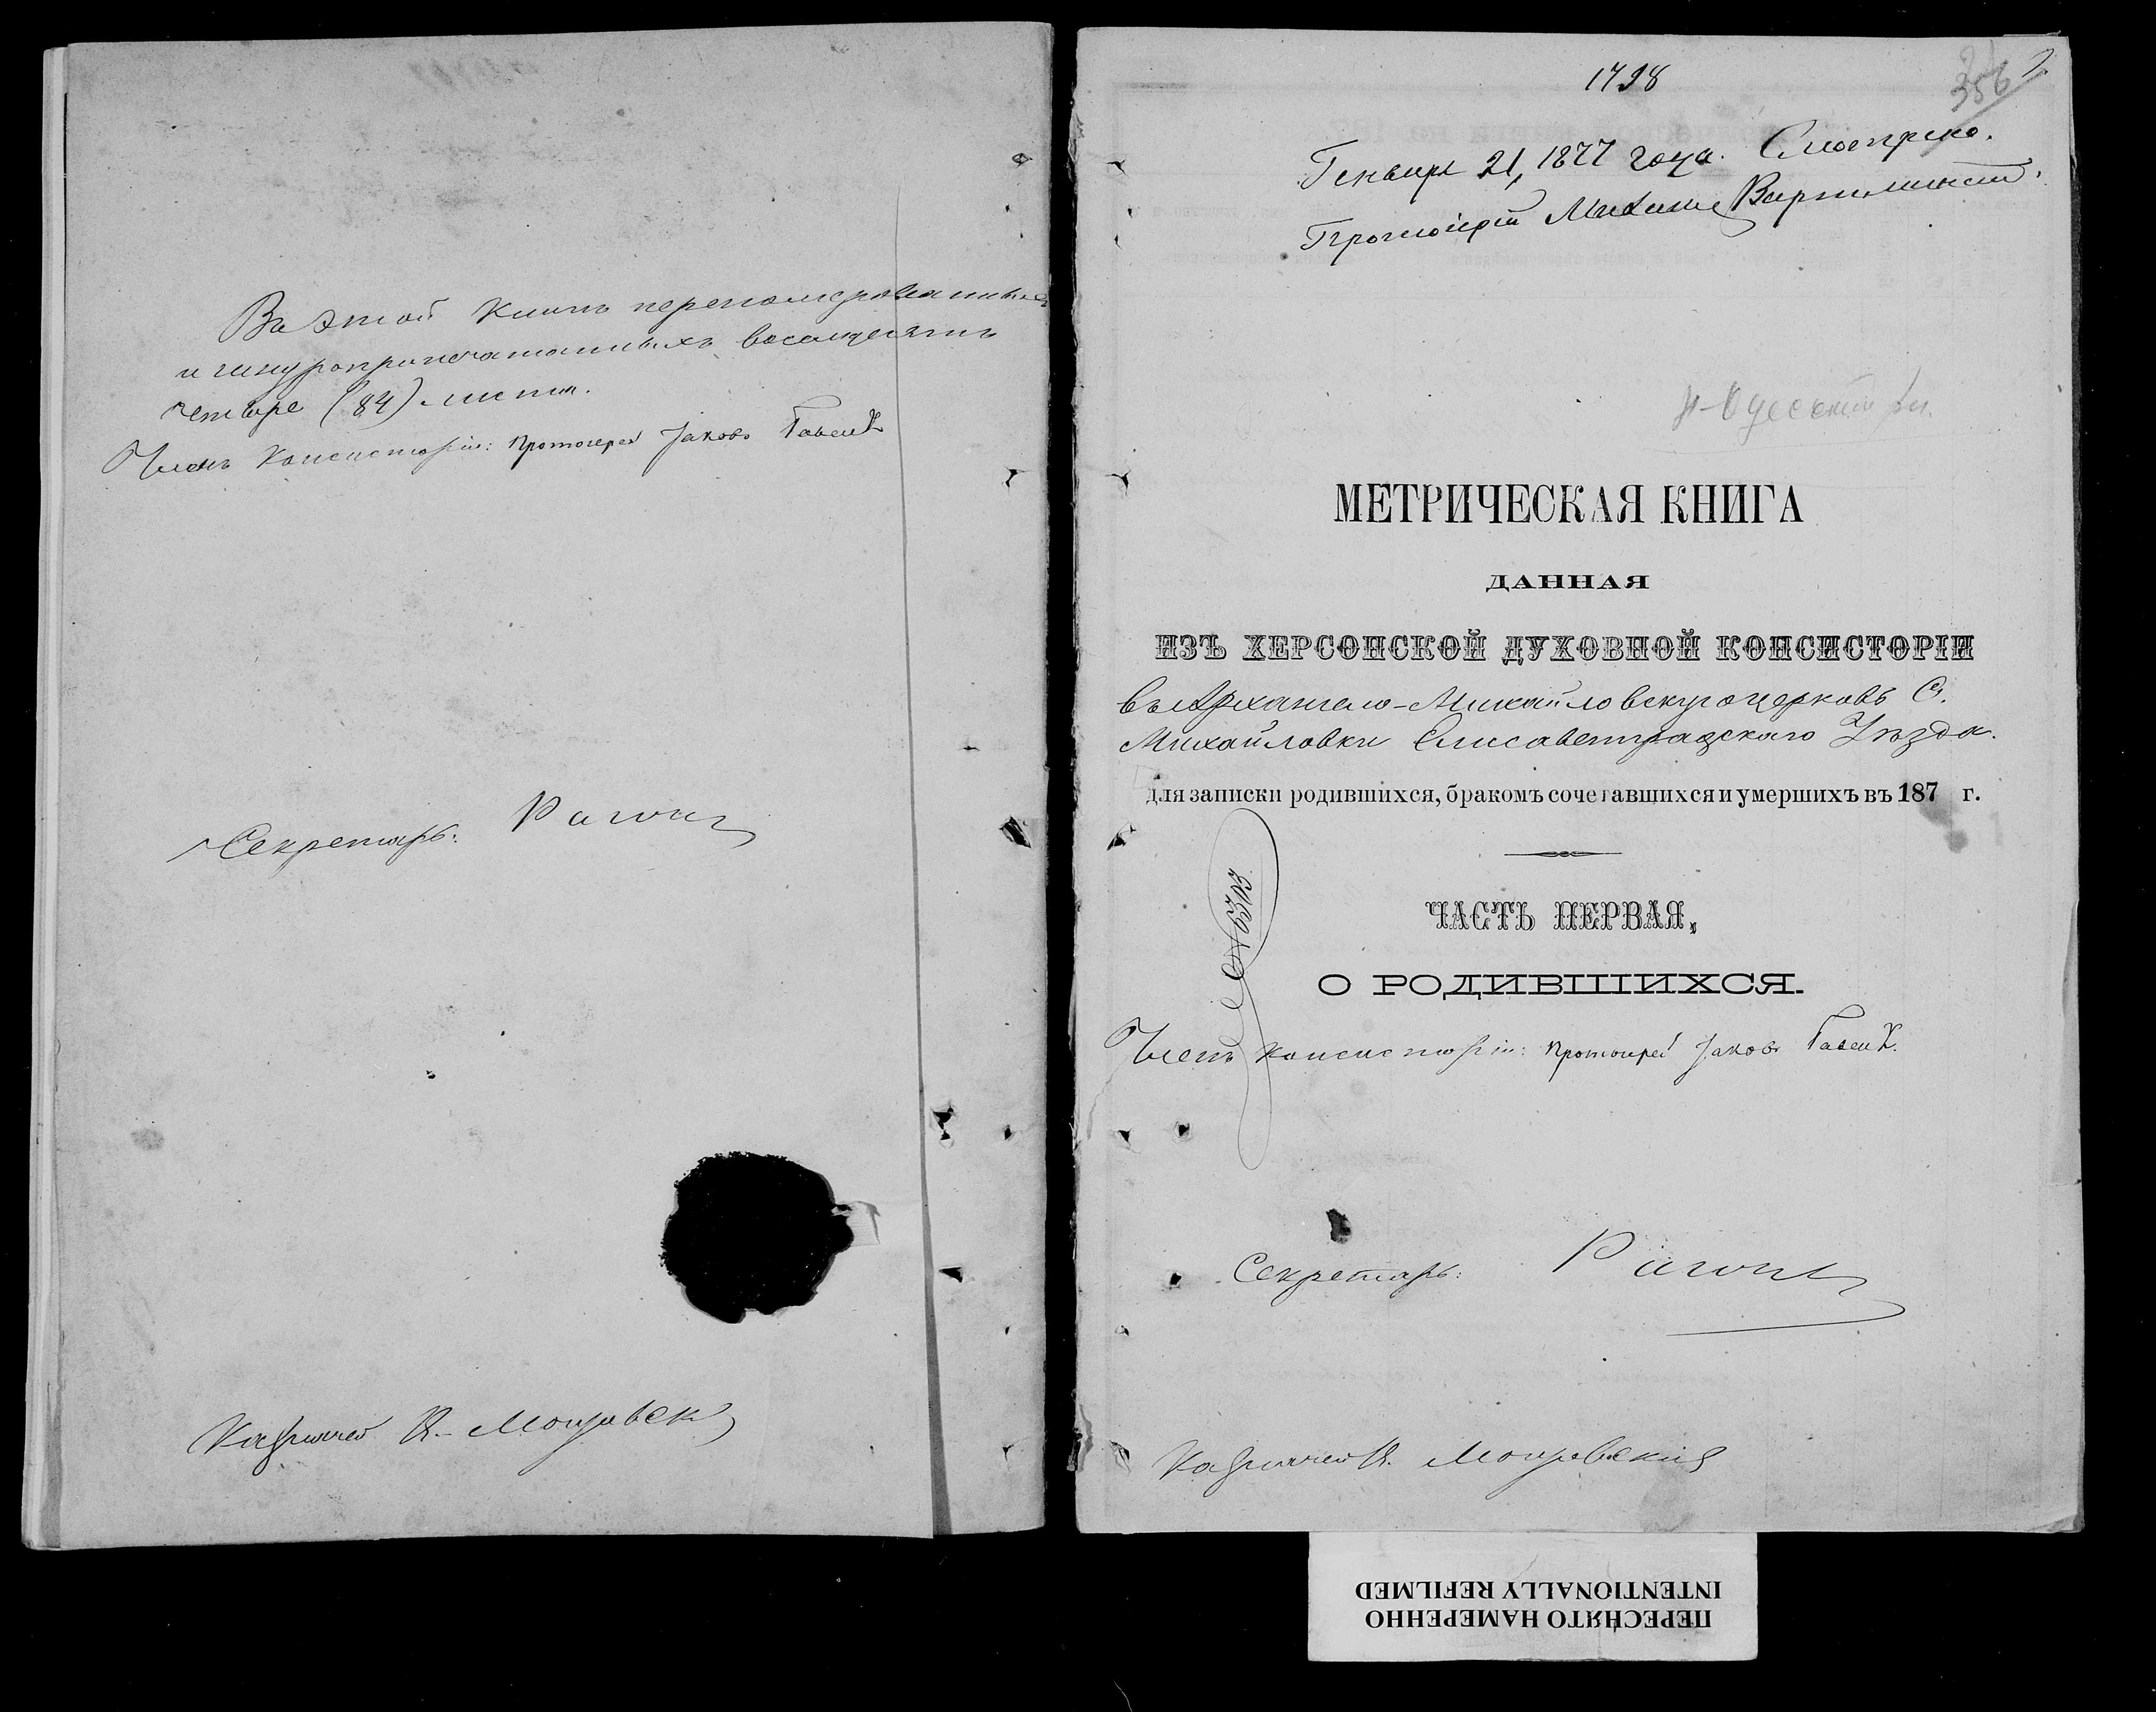 Въ этой книгѣ перенумерованныхъ
и шнуроприпечатанныхъ восемдесятъ
четыре (84) листа.
Членъ Консисторіи: Протоіерей Іаковъ
Секретарь:
Казначей К.
1798
356
Генваря 21, 1877 года. Смотрено.
Протоіерей Михаилъ
МЕТРИЧЕСКАЯ КНИГА
ДАННАЯ
ИЗЪ ХЕРСОНСКОЙ ДУХОВНОЙ КОНСИСТОРІИ
въ Архангело-Михайловскую церковь С.
Михайловки Елисаветградскаго Уѣзда.
для записки родившихся, бракомъ сочетавшихся и умершихъ въ 187 г.
ЧАСТЬ ПЕРВАЯ,
О РОДИВШИХСЯ.
Членъ Консисторіи: Протоіерей Іаковъ
Секретарь:
Казначей К.
ПЕРЕСНЯТО НАМЕРЕННО
INTENTIONALLY REFILMED